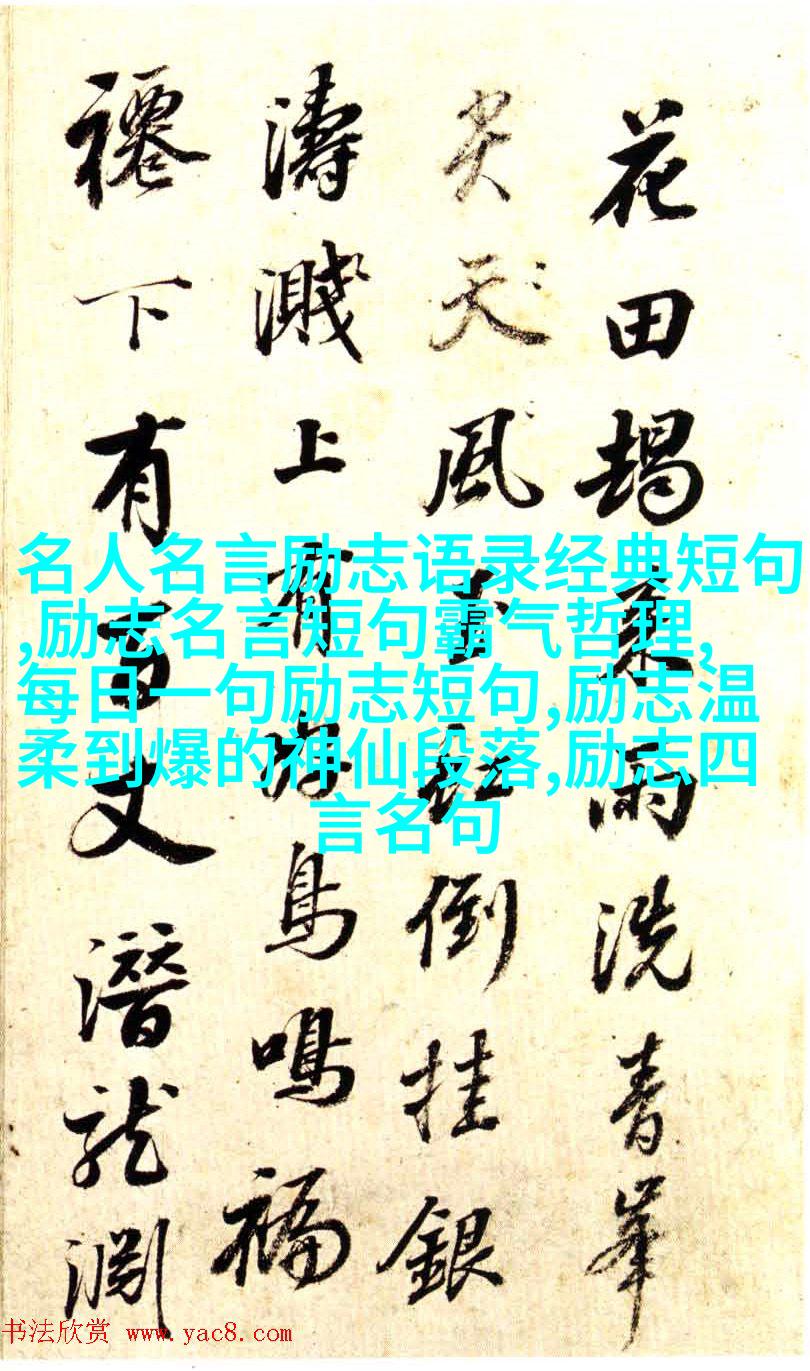 花田朅來雨洗青峯
尖天風玉虹倒挂銀
濤濺上有好鳥鳴福
下有百丈潛龍淵
名人名言励志语录经典短句
,励志名言短句霸气哲理,
每日一句励志短句,励志温
柔到爆的神仙段落,励志四
言名句
书法欣赏 www.yac8.com